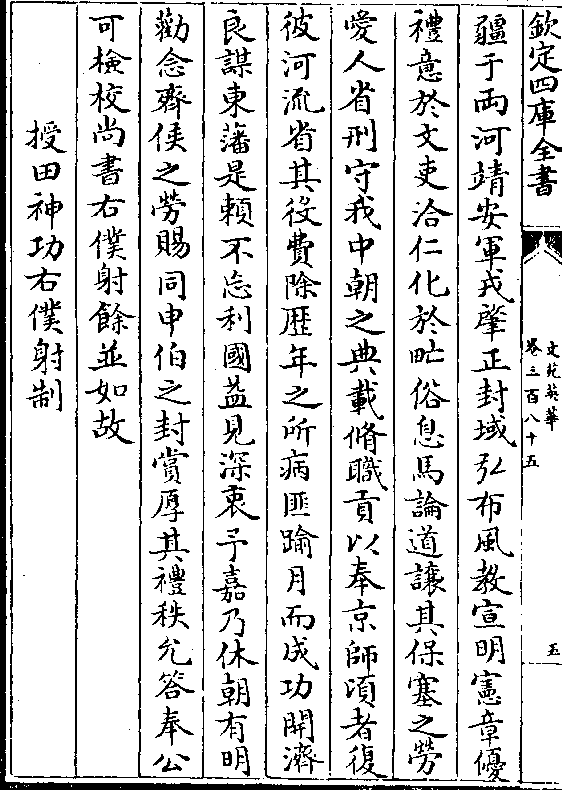 欽定四庫全書
文苑英華
卷三百八十五
五
疆于兩河靖安軍戎肇正封域弘布風教宣明憲章優
禮意於文吏洽仁化於甿俗息馬論道讓其保塞之勞
愛人省刑守我中朝之典載脩職貢以奉京師頃者復
彼河流省其役費除歴年之所病匪踰月而成功開濟
良謀東藩是頼不忘利國益見深衷予嘉乃休朝有明
勸念齊侯之勞賜同申伯之封賞厚其禮秩允答奉公
可檢校尚書右僕射餘並如故
授田神功右僕射制